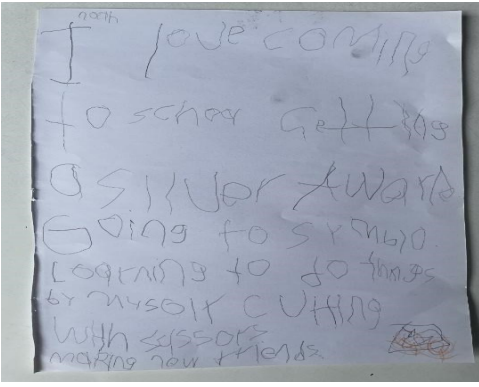 noah
I love coming
to school Getting
a silver Award
Going to
Learning to do things
by myself cutting
with sissors
making new friends.